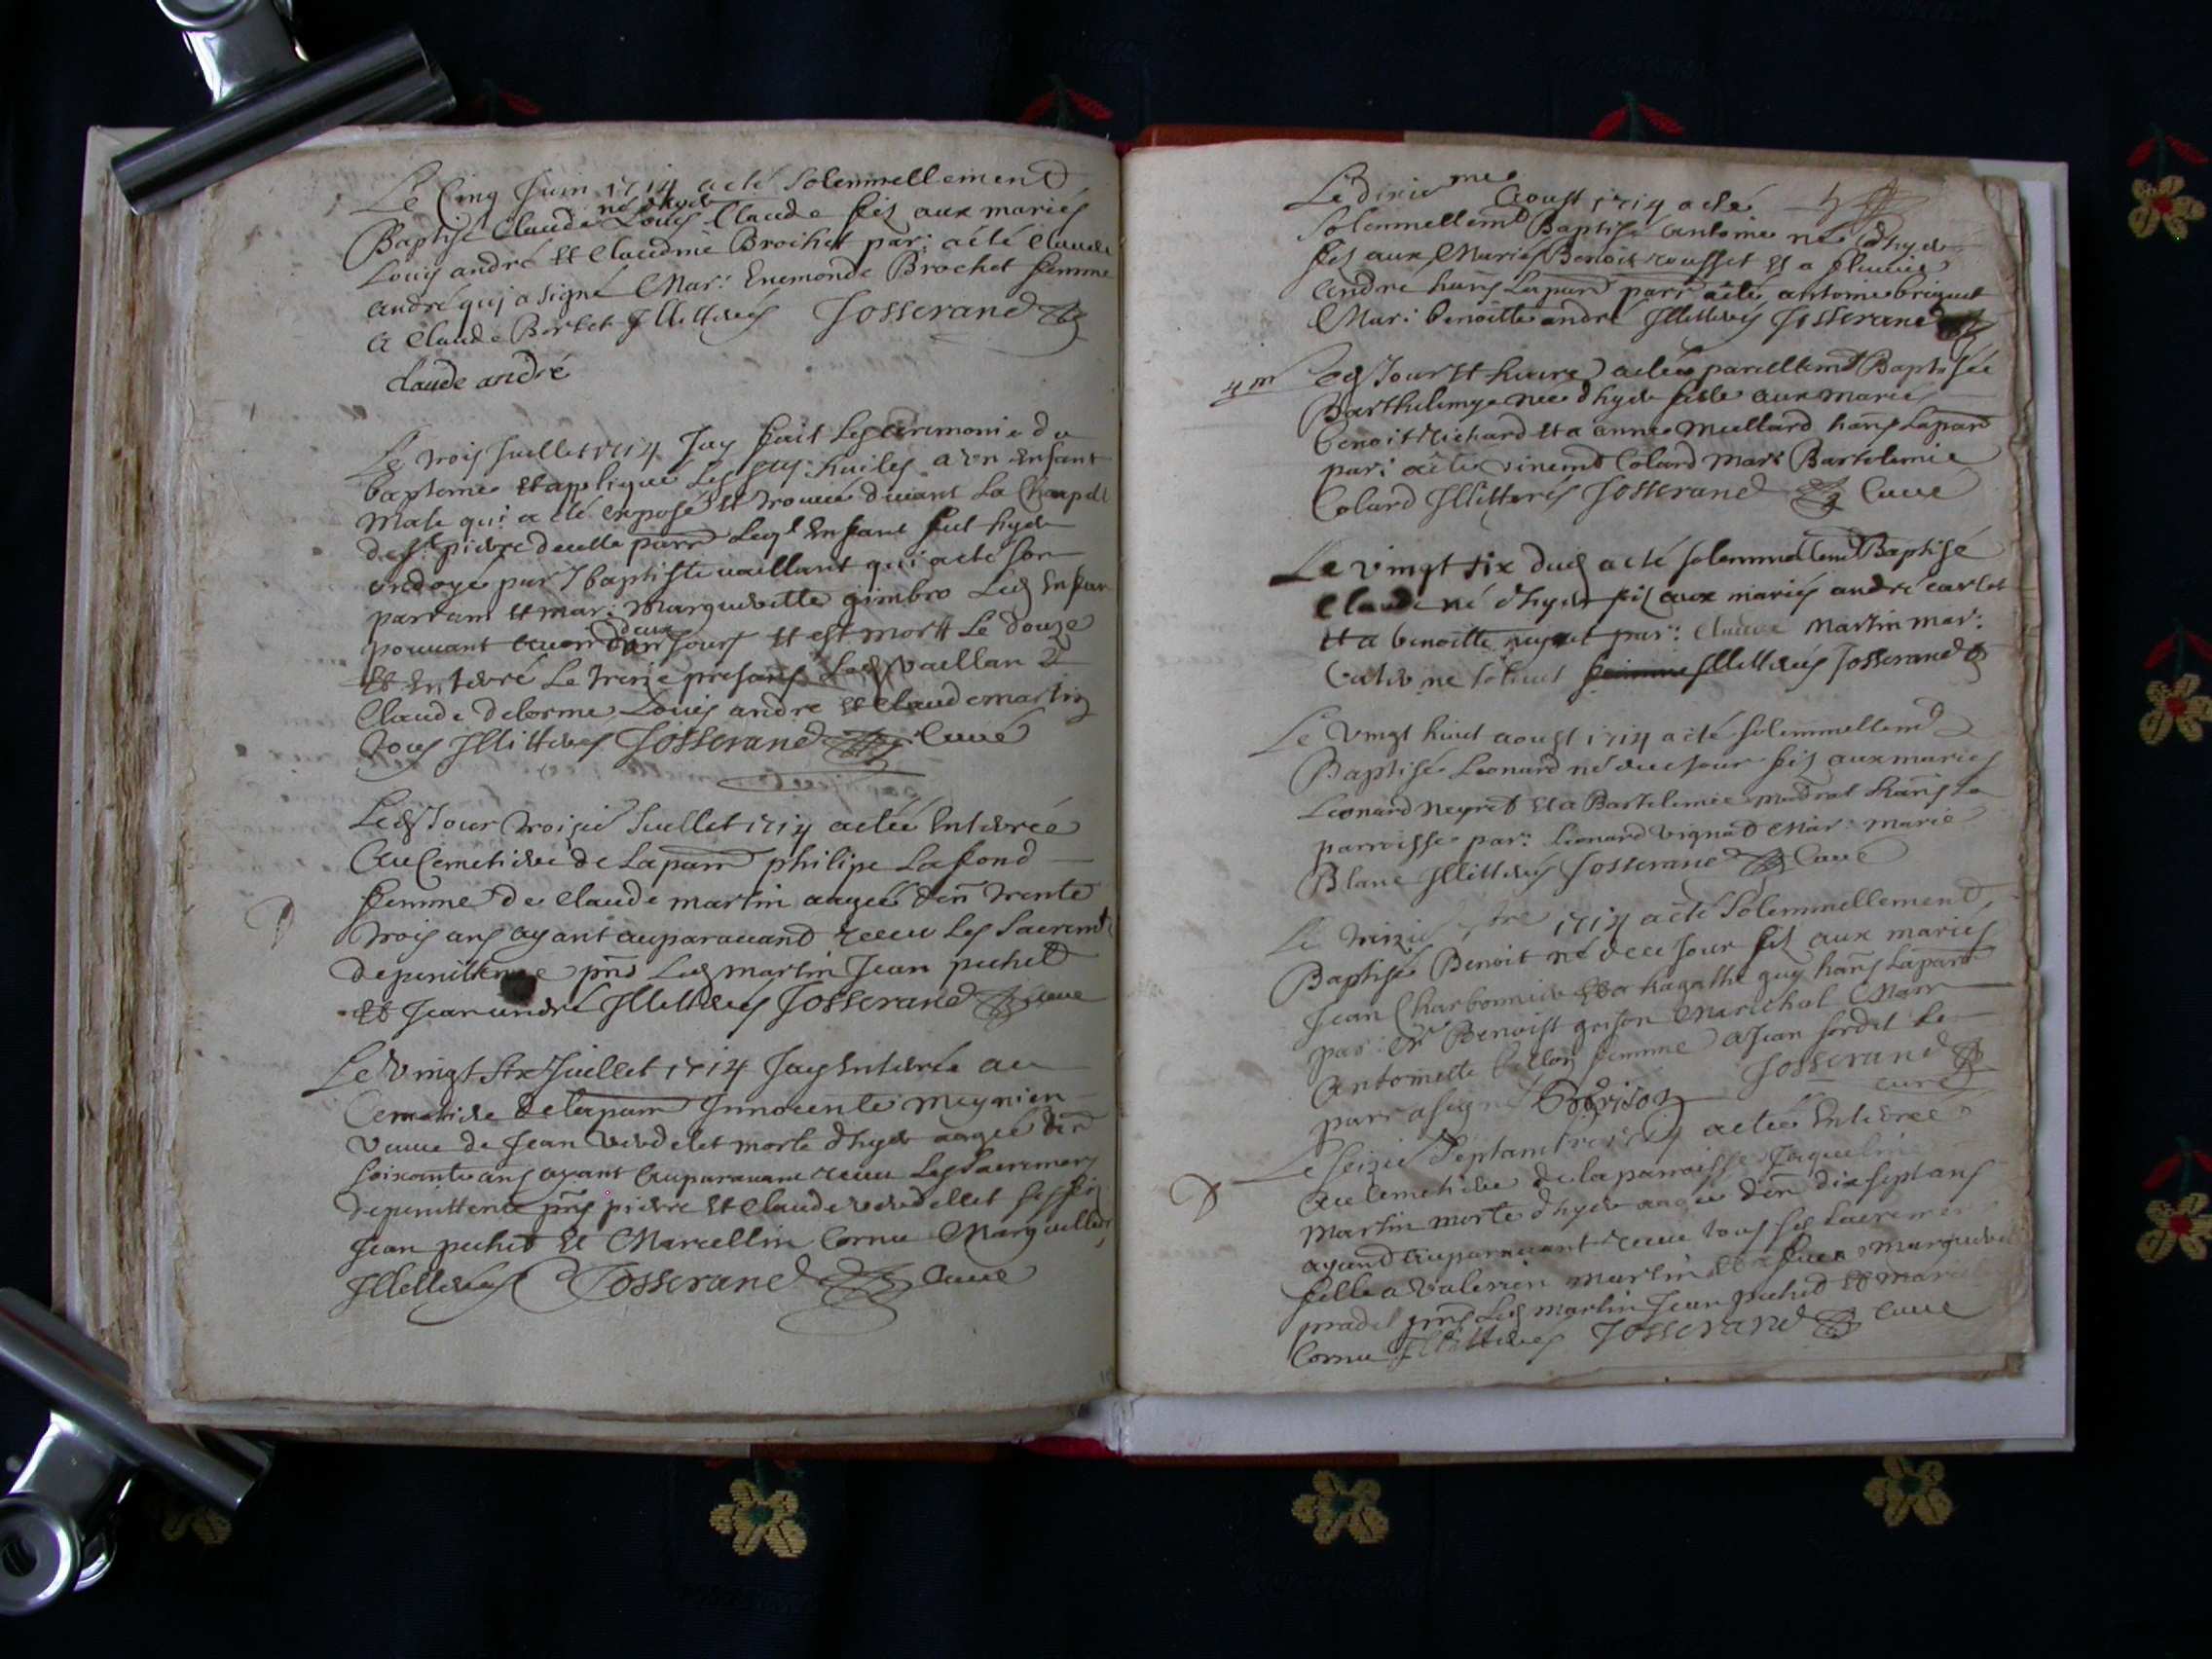 Le Cinq Juin 1714 a eté Solemnellement
né d'hyer
Baptisé Claude Louis Claude fils aux mariés
Louis andré et Claudine Brochet par: a été Claude
andré quj a signé Mar: Enemonde Brochet femme
a Claude Berlet Jllitterés Josserand
claude andré
Le trois Juillet 1714 Jay fait les ceremonie du
bapteme et appliqué les Stes huiles a un Enfant
Male qui a eté exposé et trouvé devant la Chapelle
de St pierre de cette parr Leql Enfant fut hyer
ondoyé par J baptiste vaillant qui a eté son
parrain et mar: Margueritte gimbro Led Enfan
deux
pouvant avoir Jours et est mortt Le douze
et Enterré Le treize presans Led vaillan
Claude delorme Louis andre et Claude martin
tous Jllitteres Josserand Curé
Led Jour troizie Juillet 1714 a eteé Enterrée
Au Cemetiere de La parr philipe Lafond
femme de Claude martin aageé den trente
trois ans ayant auparavand receu Les Sacremts
de penittence pns Led martin Jean pechet
et Jean andré Jllitterés Josserand Curé
Le Vingt Six Juillet 1714 Jay Enterrée au
Cemetiere de la parr Innocente meynien
veuve de Jean verdelet morte d'hyer aagée den
soixante ans ayant Auparavant receu Les Sacremens
de penittence pns pierre et Claude verdellet ses fils
Jean pechet et Marcellin Cornu Marguillier
Jllitterés Josserand Curé
Le dixie me Aoust 1714 a eté
Solemnellemt Baptisé antoine né d'hyer
fils aux Mariés Benoit rousset et a fleurie
andre hans La parr parr a eté antoine briquet
Mar: benoitte andré Jllitterés Josserand
4 m Led Jour et heure a eteé pareillemt Baptisée
Barthelemye neé d'hyer fille aux mariés
benoit Richard et a anne meallard hans La parr
par: a eté vincent Colard Mar: Bartelemie
Colard Jllitterés Josserand Curé
Le vingt six dud a eté solemnellemt Baptisé
Claude né d'hyer fils aux mariés andré carlet
et a benoitte par: Claude Martin mar:
Caterine Jllitterés Josserand
Le Vingt huict aoust 1714 a eté solemnellemt
Baptisé Leonard né de ce Jour fils aux mariés
Leonard neyret et a Bartelemie hans La
parroisse par: Lionard vignat Mar: marie
Blanc Jllitterés Josserand Curé
Le treizie 7bre 1714 a eté Solemnellement
Baptisé Benoit né de ce Jour fils aux mariés
Jean Charbonnier et a hagathe guy hans La parr
par: Sr Benoist grison Marechal Marr
Antoinette billon femme a Jean sordet le
parr a signé BGrison Josserand
curé
Le seizie Septambre 1714 a eteé Enterrée
Au Cemetiere de la parroisse Jaqueline
Martin morte d'hyer aageé den dix sept ans
ayand auparavant receu tous ses Sacremens
fille a Valerien martin et a feue Marguerite
pradel pns Led martin Jean pechet et Marcel
Cornu Jllitteres Josserand Curé